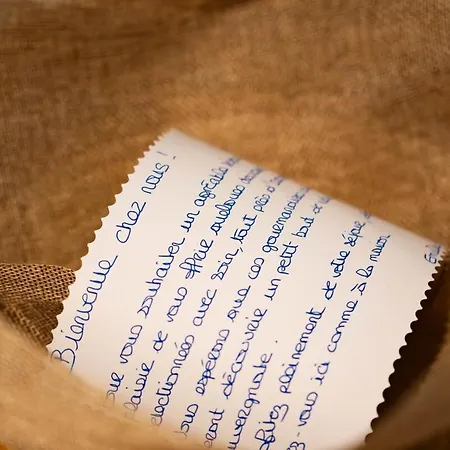 Bienvenue chez nous !
vous souhaiter un agréable
de vous offrir quelques
avec soin, tout plein d'
espérons que ces gourmandises
découvrir un petit bout de
uvergnate.
pleinement de votre séjour
-vous ici comme à la maison